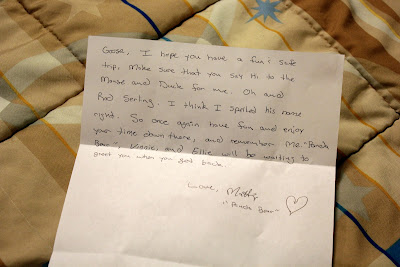 Goose, I hope you have a fun & safe
trip, make sure that you say Hi to the
Mouse and Duck for me. Oh and
Rod Serling. I think I spelled his name
right. So once again have fun and enjoy
your time down there, and remember me "Panda
Bear", and Ellie will be waiting to
greet you when you get back.
Love,
"Panda Bear"